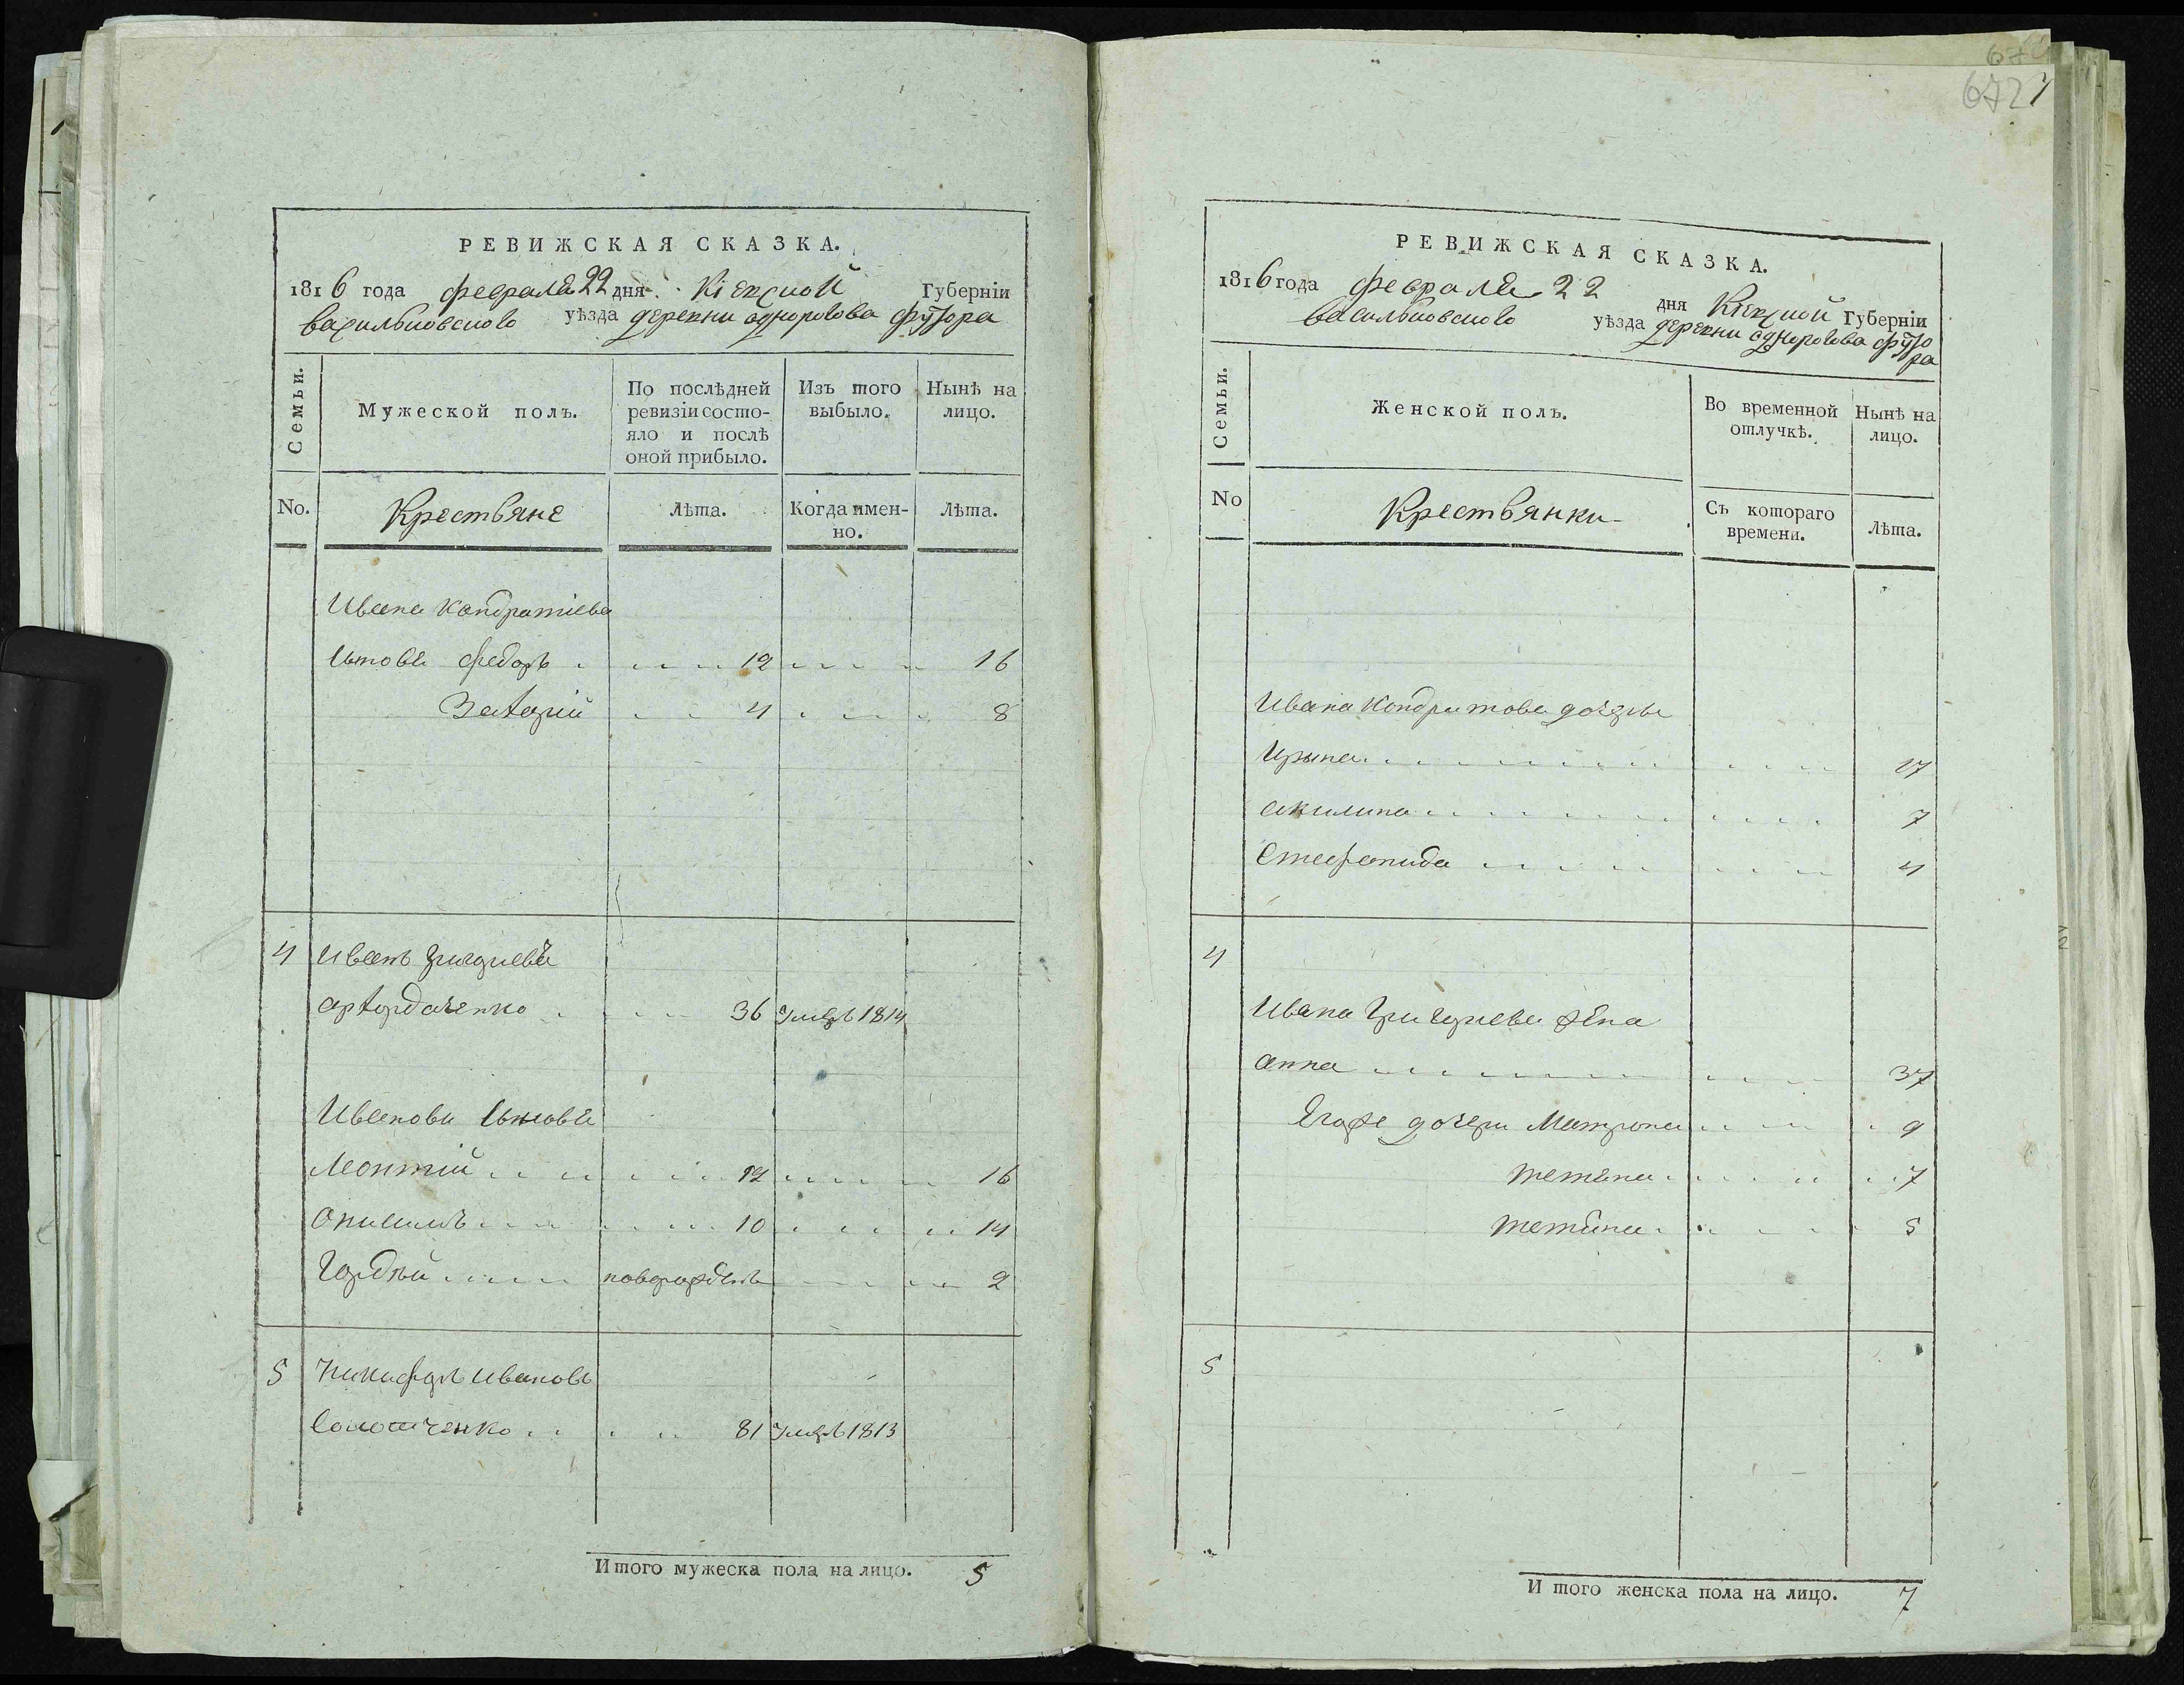 РЕВИЖСКАЯ СКАЗКА.
1816 года февраля 22 дня Кіевской Губерніи
васильковского уѣзда деревни однорогова футора
Семьи.
Мужеской полъ.
По послѣдней ревизіи состо-
яло и послѣ
оной прибыло.
Изъ того
выбыло.
Нынѣ на
лицо.
No.
Крестьяне
Лѣта.
Когда имен-
но.
Лѣта.
Ивана Кондратіева
сыновя федоръ 12 16
Захарій 4 8
4 Иванъ Григориевъ
36 умеръ 1814
Ивановы сыновя
Леонтій 12 16
Онисимъ 10 14
Гордѣй новорожденъ 2
5 Никифоръ Ивановъ
81 умеръ 1813
Итого мужеска пола на лицо. 5
672
РЕВИЖСКАЯ СКАЗКА.
1816 года февраля 22 дня Кіевской Губерніи
васильковского уѣзда деревни однорогова футо
ра
Семьи.
Женской полъ.
Во временной
отлучкѣ.
Нынѣ на
лицо.
No
Крестьянки
Съ котораго
времени.
Лѣта.
Ивана Кондратова дочери
Ирына 17
акилина 7
Стефанида 4
4
Ивана Григориева жена
анна 37
Егоже дочери Матрона 9
татяна 7
татяна 5
5
Итого женска пола на лицо. 7